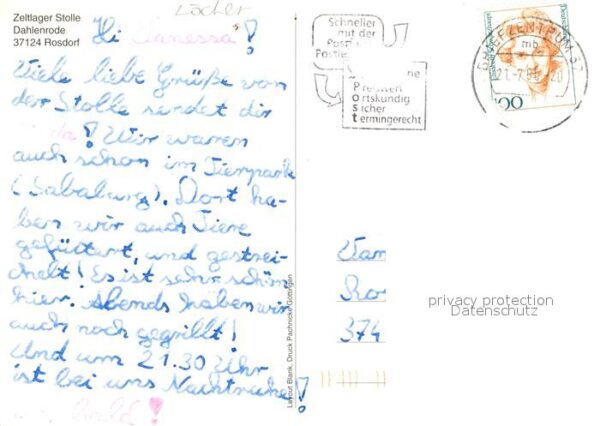 Zeltlager Stolle
Dahlenrode
37124 Rosdorf
Löcher
Hi Vanessa!
Viele liebe Grüße von
der Stolle sendet dir
! Wir waren
auch schon im Tierpark
(Sababurg). Dort ha-
ben wir auch Tiere
gefüttert, und gestrei-
chelt! Es ist sehr schön
hier. Abends haben wir
auch noch gegrillt!
Und um 21.30 Uhr
ist bei uns Nachtruhe!
bald!
Layout Blank, Druck Pachnicke Göttingen
Schneller
mit der
Post
Postle
ne
Preiswert
Ortskundig
sicher
termingerecht
BRIEFZENTRUM 37
mb
20
100
Van
Ro
374
privacy protection
Datenschutz